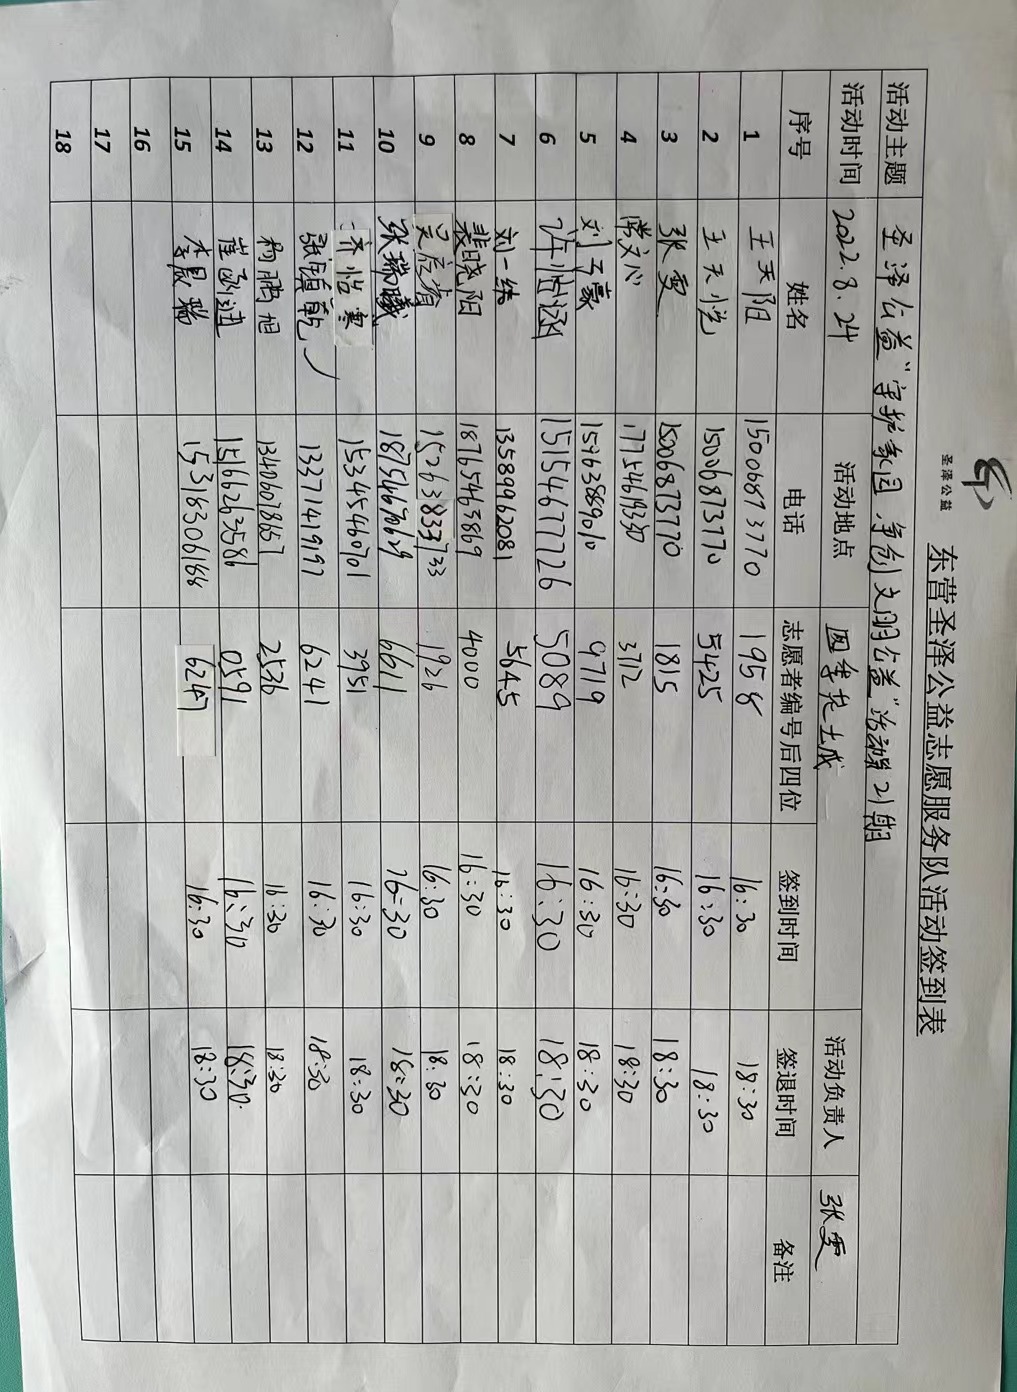 圣泽公益
东营圣泽公益志愿服务队活动签到表
活动主题 圣泽公益“守护家园,争创文明公益”活动第21期
活动时间 2022.8.24 活动地点 活动负责人 张雯
序号 姓名 电话 志愿者编号后四位 签到时间 签退时间 备注
1 王天阳 15006873770 1958 16:30 18:30
2 王天悦 15006873770 5425 16:30 18:30
3 张雯 15006873770 1815 16:30 18:30
4 17754619380 3712 16:30 18:30
5 刘子豪 15963889010 9719 16:30 18:30
6 许怡涵 15154677226 5089 16:30 18:30
7 刘一纬 13589962081 5645 16:30 18:30
8 裴晓阳 18765463869 4000 16:30 18:30
9 15263833733 1926 16:30 18:30
10 张瑞曦 18754670629 6611 16:30 18:30
11 齐怡寒 15345460701 3951 16:30 18:30
12 13371419197 6241 16:30 18:30
13 杨鹏旭 13406018657 2536 16:30 18:30
14 15662635586 0591 16:30 18:30
15 李晨瑜 15318306188 6247 16:30 18:30
16
17
18